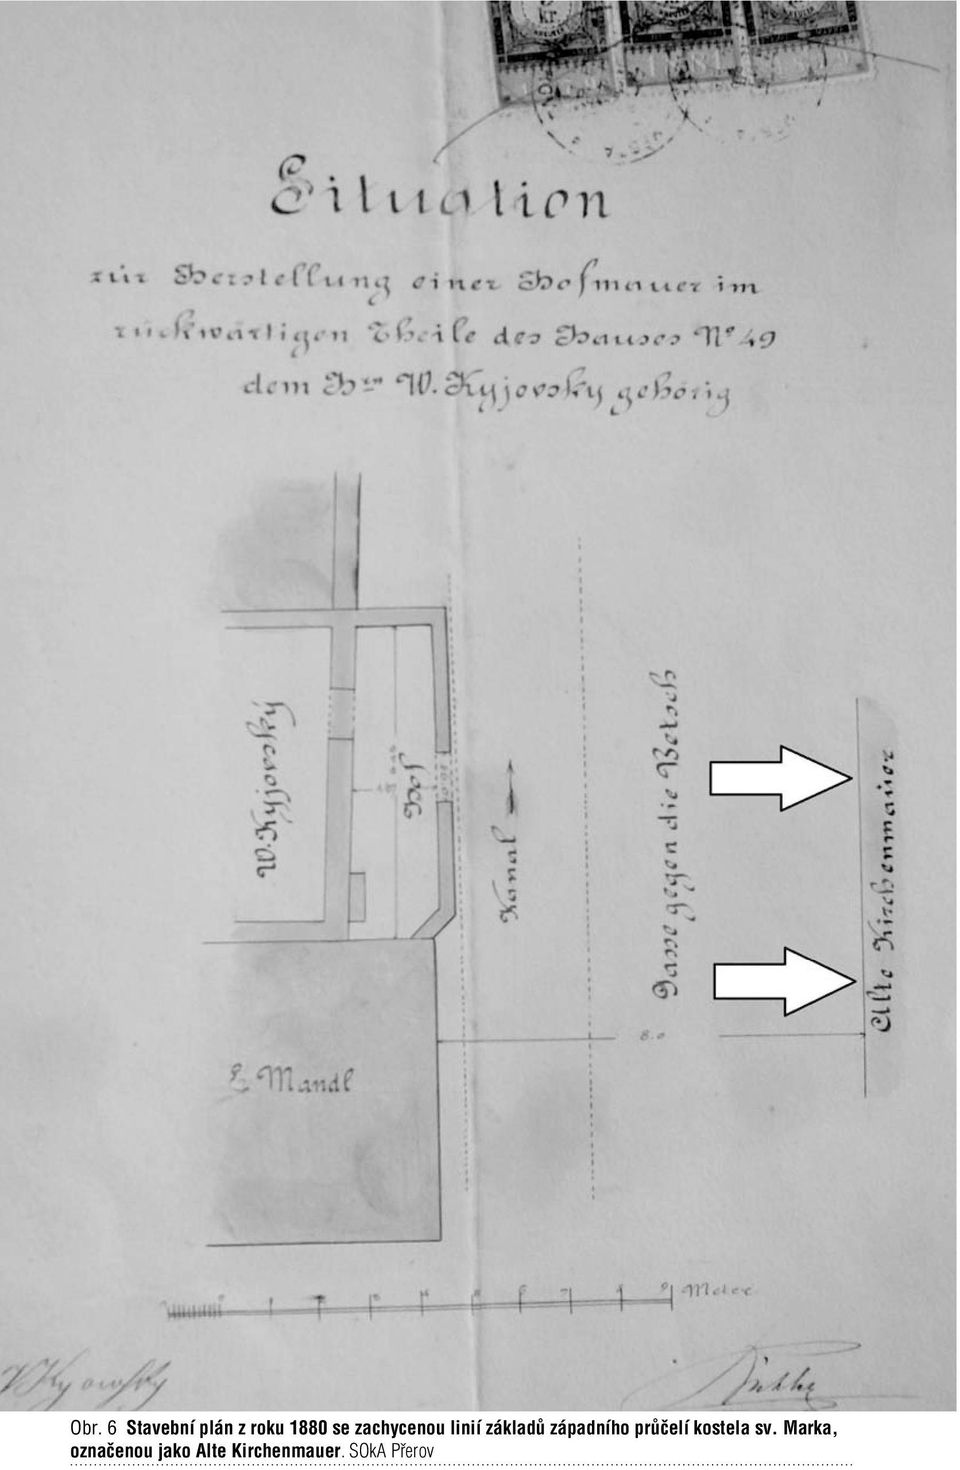 kr
Situation
zur Herstellung einer Hofmauer im
rückwärtigen Theile des Hauses Nº 49
dem Hrn W. Kyjovsky gehörig
W. Kyjovský
Hof
Kanal
Gasse gegen die Betsch
Alte Kirchenmauer
8.0
E Mandl
Meter
WKyovsky
Obr. 6 Stavební plán z roku 1880 se zachycenou linií základů západního průčelí kostela sv. Marka,
označenou jako Alte Kirchenmauer. SOkA Přerov